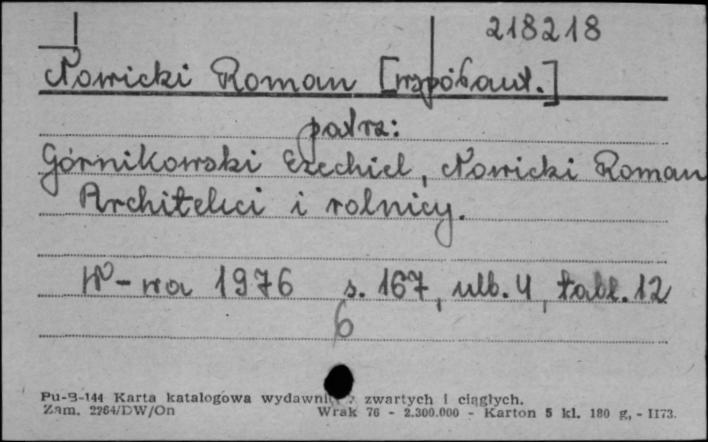 218218
Nowicki Roman [współaut.]
patrz:
Górnikowski Ezechiel, Nowicki Roman
Architekci i rolnicy.
W-wa 1976 s. 167, ulb. 4, tabl. 12
6
Pu-B-144 Karta katalogowa wydawni zwartych i ciągłych.
Zam. 2264/DW/On Wrak 76 - 2.300.000 - Karton 5 kl. 180 g, - II73.